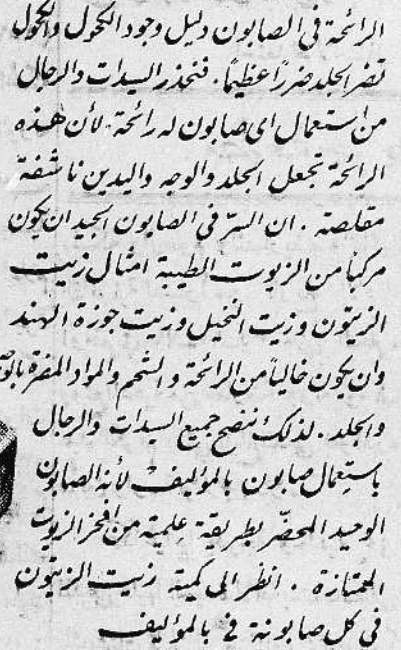 الرائحة في الصابون دليل وجود الكحول والكحول
تضر الجلد ضرراً عظيماً. فنحذر السيدات والرجال
من استعمال اى صابون له رائحة. لأن هذه
الرائحة تجعل الجلد والوجه واليدين ناشفة
مقلصة. ان السر في الصابون الجيد ان يكون
مركباً من الزيوت الطيبة امثال زيت
الزيتون وزيت النخيل وزيت جوزة الهند
وان يكون خالياً من الرائحة والشحم والمواد المضرة بالوجه
والجلد. لذلك ننصح جميع السيدات والرجال
باستعمال صابون بالموليف لأنه الصابون
الوحيد المحضّر بطريقة علمية من افخر الزيوت
الممتازة. انظر الى كمية زيت الزيتون
في كل صابونة في بالموليف